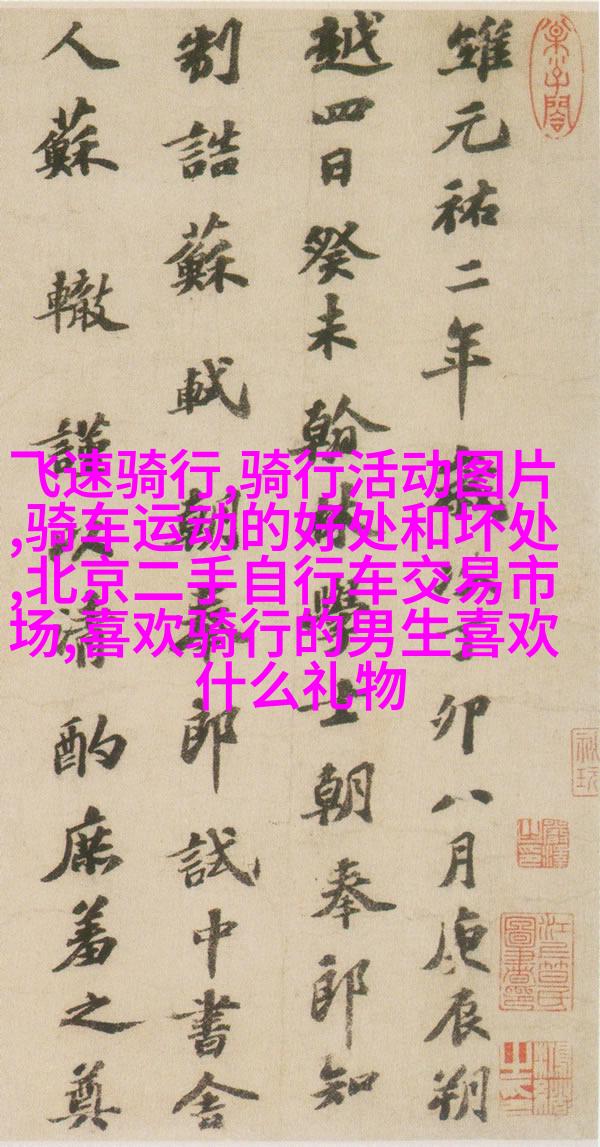 維元祐二年歲次丁卯八月庚辰朔
越四日癸未翰林學士朝奉郎知
制誥蘇軾朝奉郎試中書舍
人蘇轍謹以清酌庶羞之奠
飞速骑行,骑行活动图片
,骑车运动的好处和坏处
,北京二手自行车交易市
场,喜欢骑行的男生喜欢
什么礼物